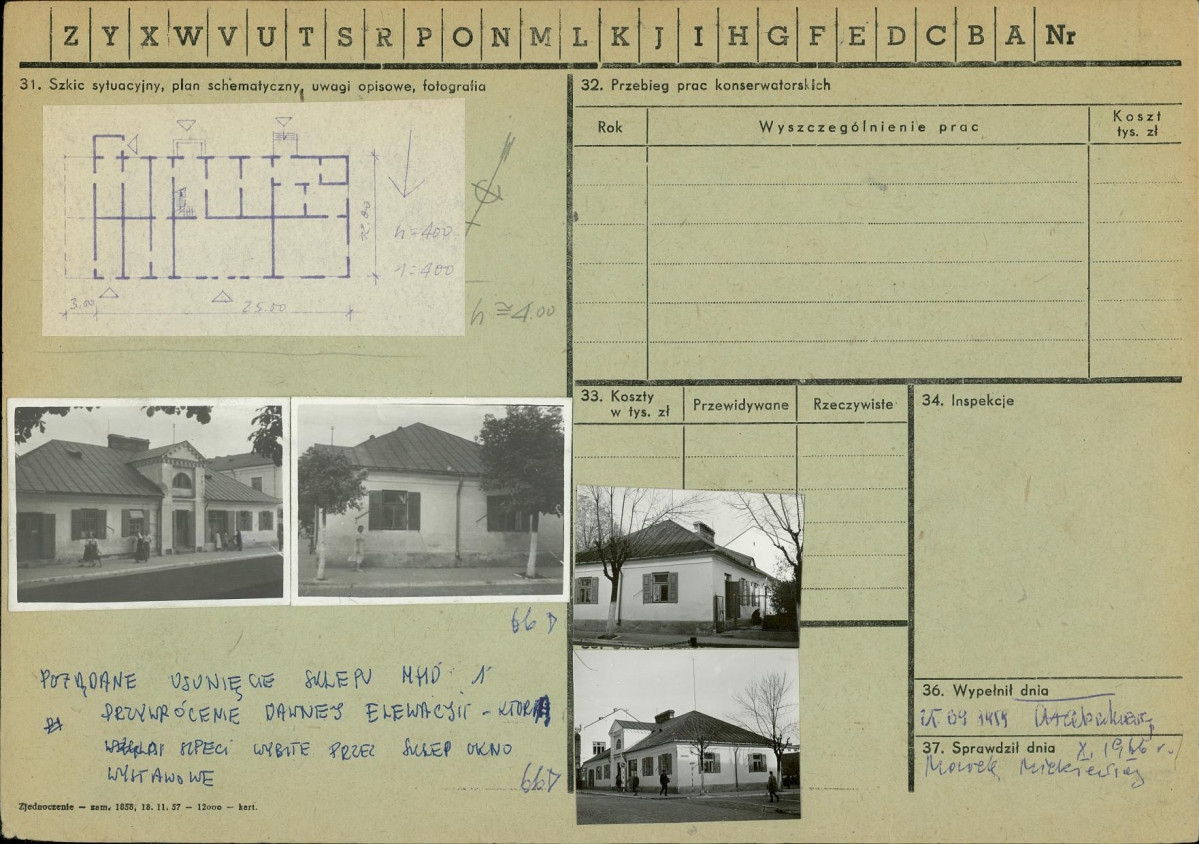 Z Y X W V U T S R P O N M L K J I H G F E D C B A Nr
31. Szkic sytuacyjny, plan schematyczny, uwagi opisowe, fotografia
h=400
1=400
3.00
25.00
h ≅ 4.00
66 D
POŻĄDANE USUNIĘCIE SKLEPU MHD I
PRZYWRÓCENIE DAWNEJ ELEWACJI - KTÓRĄ
SZPECI WYBITE PRZEZ SKLEP OKNO
WYSTAWOWE
66 D
Zjednoczenie — zam. 1658, 18. 11. 57 — 12000 — kart.
32. Przebieg prac konserwatorskich
Rok
Wyszczególnienie prac
Koszt
tys. zł
33. Koszty
w tys. zł
Przewidywane
Rzeczywiste
34. Inspekcje
36. Wypełnił dnia
09 1959
37. Sprawdził dnia X. 1966 r.
Marek